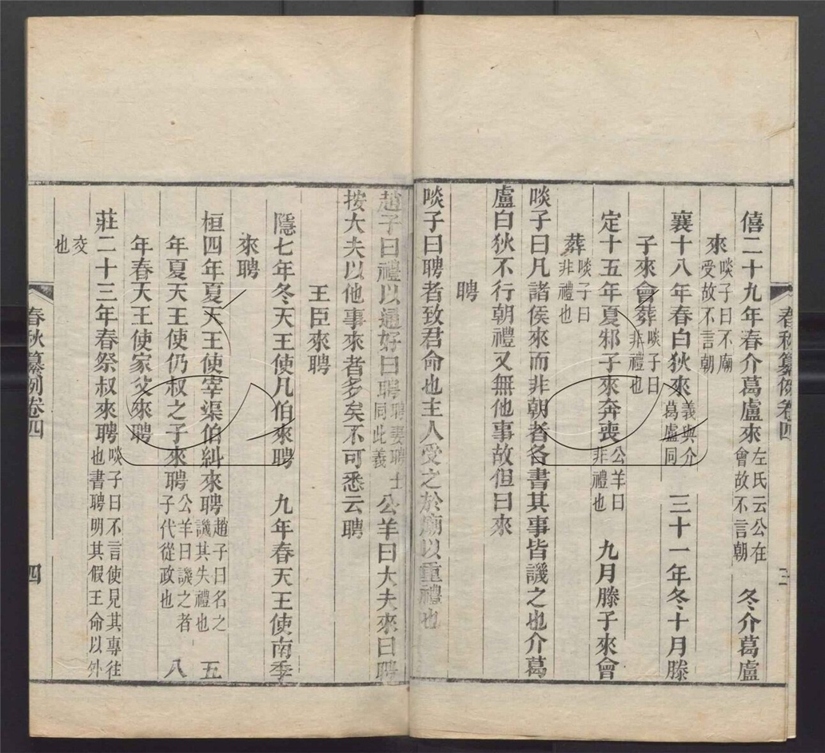 春秋纂例卷四
三
僖二十九年春介葛盧來左氏云公在會故不言朝 冬介葛盧
來啖子曰不廟受故不言朝
襄十八年春白狄來義與介葛盧同 三十一年冬十月滕
子來會葬啖子曰非禮也
定十五年夏邾子來奔喪公羊曰非禮也 九月滕子來會
葬啖子曰非禮也
啖子曰凡諸侯來而非朝者各書其事皆譏之也介葛
盧白狄不行朝禮又無他事故但曰來
聘
啖子曰聘者致君命也主人受之於廟以重禮也
趙子曰禮以通好曰聘聘妻聘士同此義 公羊曰大夫來曰聘
按大夫以他事來者多矣不可悉云聘
王臣來聘
隱七年冬天王使凡伯來聘 九年春天王使南季
來聘
桓四年夏天王使宰渠伯糾來聘趙子曰名之譏其失禮也 五
年夏天王使仍叔之子來聘公羊曰譏之者子代從政也 八
年春天王使家父來聘
莊二十三年春祭叔來聘啖子曰不言使見其專往也書聘明其假王命以外
交也
春秋纂例卷四
四